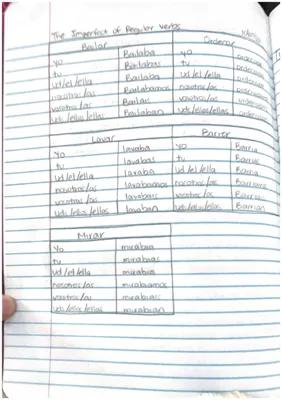 The Imperfect of Regular Verbs
Bailar Ordenar
yo Bailaba yo
tu Bailabas tu
ud/el/ella Bailaba ud/el/ella
nosotros/as Bailabamos nosotros/as
vosotros/as Bailais vosotros/as
uds/ellos/ellas Bailaban uds/ellos/ellas
Lavar Barrer
yo lavaba yo Barria
tu lavabas tu
ud/el/ella lavaba ud/el/ella Barria
nosotros/as lavabamos nosotros/as
vosotros/as lavabais vosotros/as
uds/ellos/ellas lavaban uds/ellos/ellas Barrian
Mirar
yo mirabia
tu mirabias
ud/el/ella mirabia
nosotros/as mirabiamos
vosotros/as mirabiais
uds/ellos/ellas mirabian